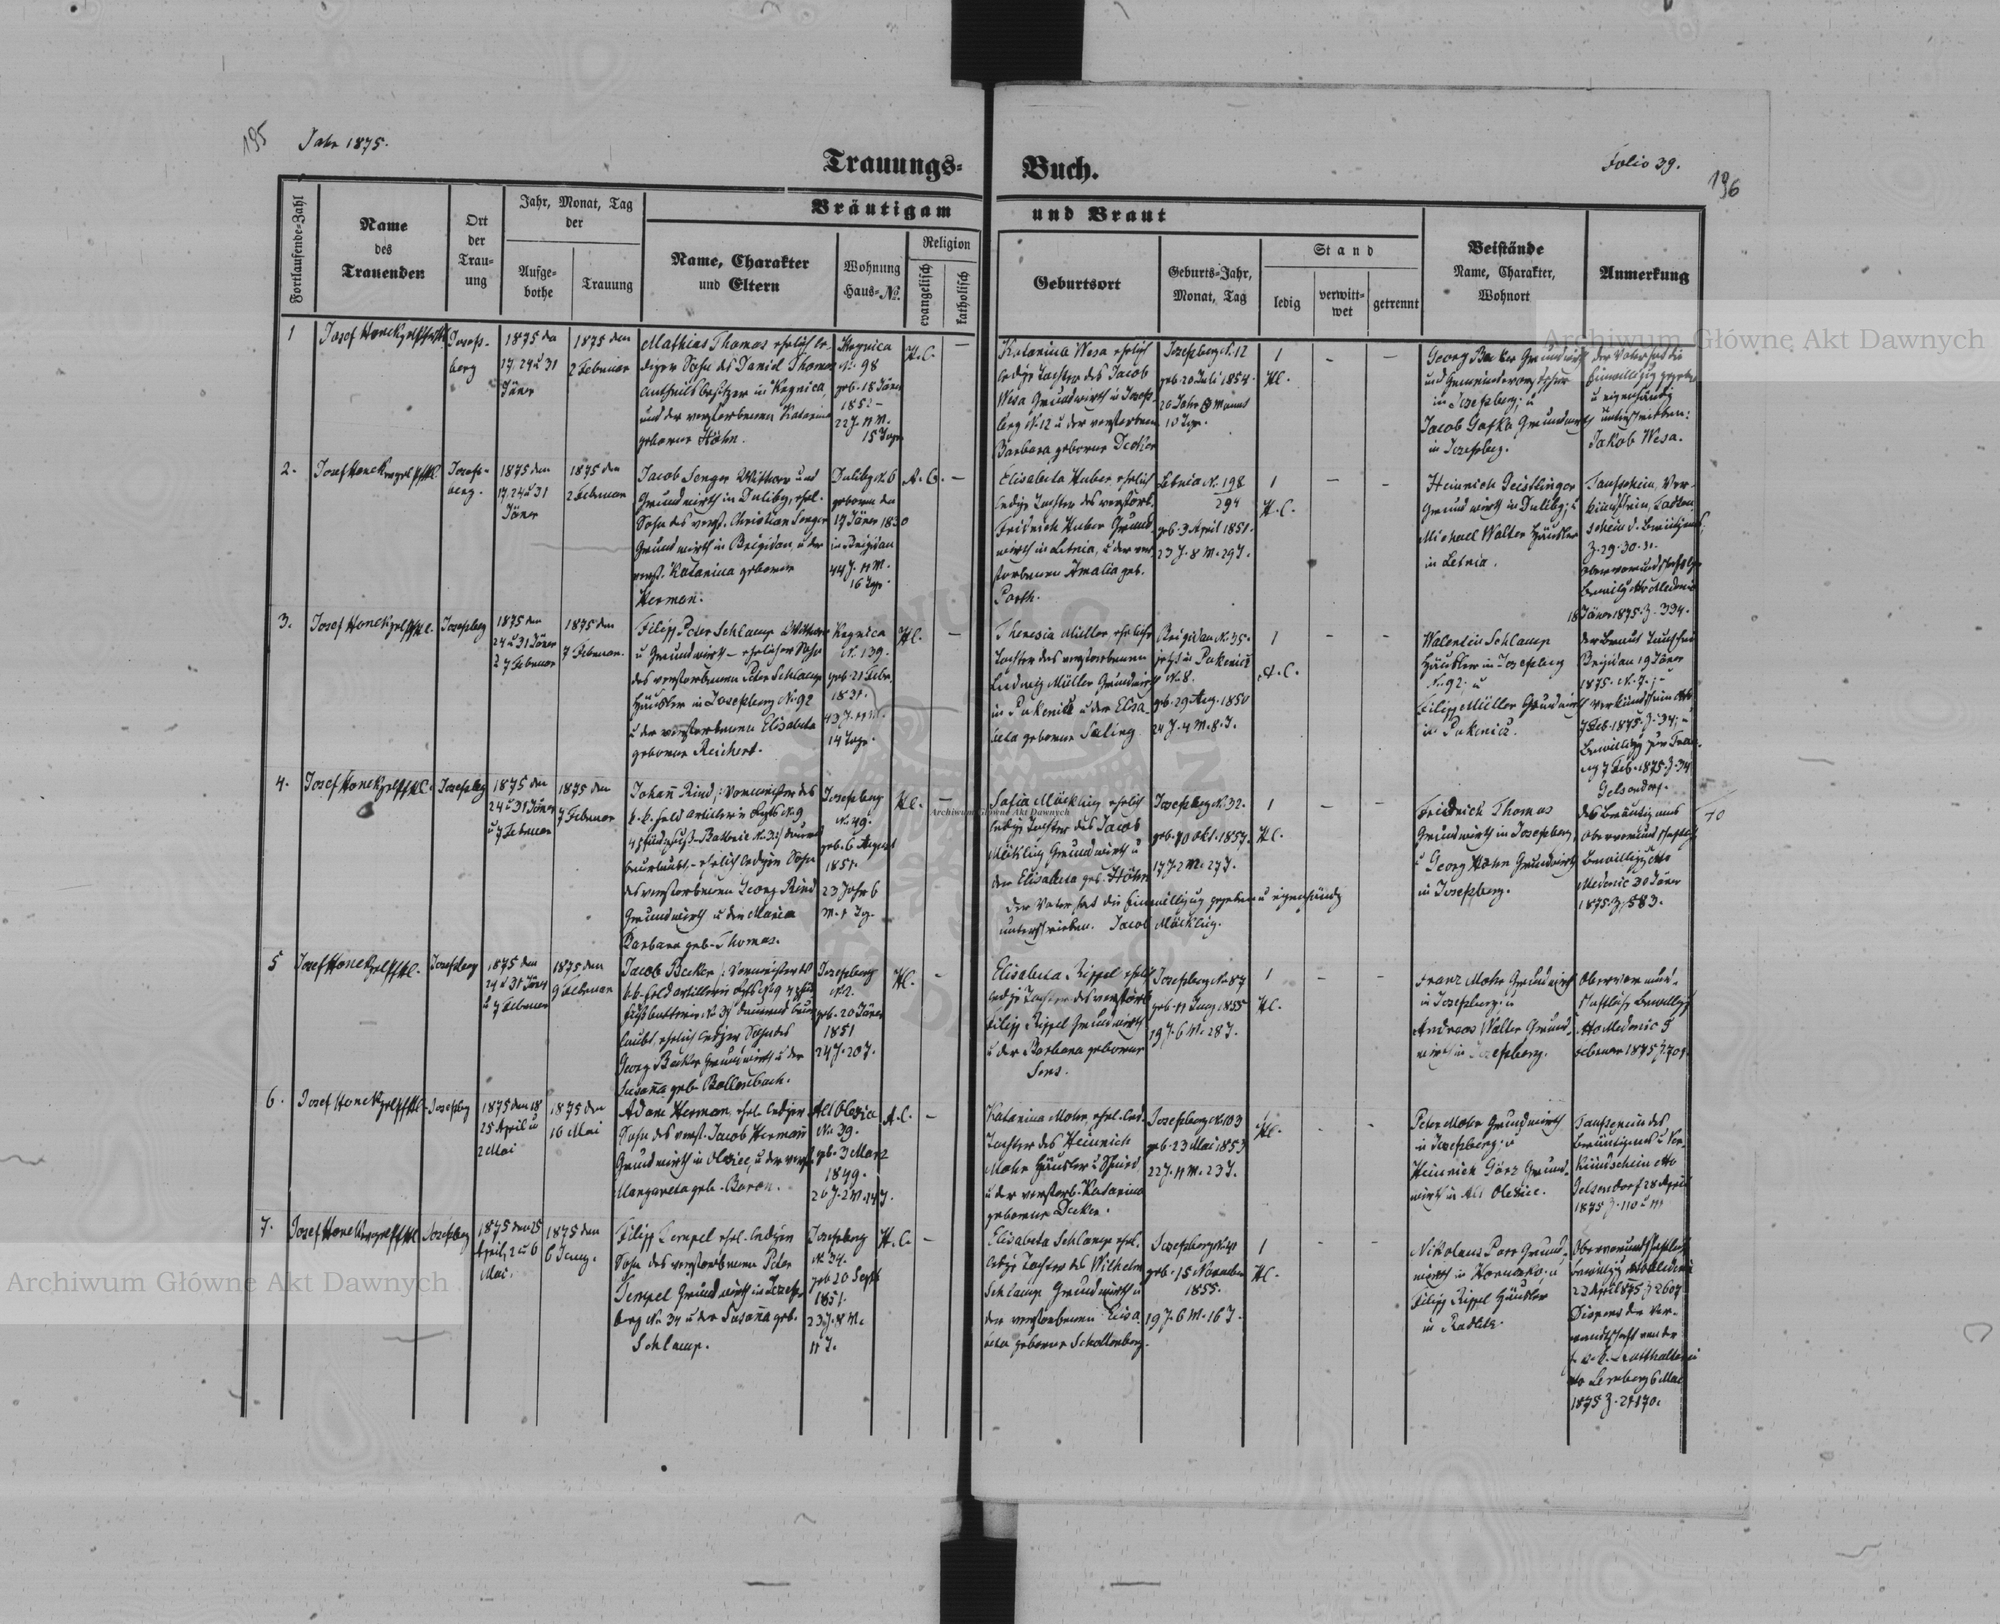 195
Jahr 1875.
Trauungs-Buch.
Folio 39.
196
Fortlaufende-Zahl
Name
des
Trauenden
Ort
der
Trau-
ung
Jahr, Monat, Tag
der
Aufge-
bothe
Trauung
Bräutigam und Braut
Name, Charakter
und Eltern
Wohnung
Haus-No.
Religion
evangelisch
katholisch
Geburtsort
Geburts-Jahr,
Monat, Tag
Stand
ledig
verwitt-
wet
getrennt
Beistände
Name, Charakter,
Wohnort
Anmerkung
1
Josef Honek
Josefs-
berg
1875 den
17, 24 u 31
Jäner
1875 den
2 Februar
Mathias Thomas ehelich le-
diger Sohn des Daniel Thomas
Antheilsbesitzer in Kegnica,
und der verstorbenen Katarina
geborene Höhn.
Kegnica
N. 98
geb. 18 Jäner
22 J. 11 M.
15 Tage
H.C.
Katarina Wesa ehelich
ledige Tochter des Jacob
Wesa Grundwirth in Josefs-
berg N. 12 u der verstorbenen
Barbara geborene Decker
Josefsberg N. 12
geb. 20 Juli 1854.
10 Tge.
1
H.C.
Georg Becker Grundwirth
und Gemeindevorsteher
in Josefsberg; u
Jacob Gafka Grundwirth
in Josefsberg.
der Vater hat die
Einwilligung gegeben
u eigenhändig
unterschrieben:
Jakob Wesa.
2.
Josef Honek
Josefs-
berg.
1875 den
17. 24 u 31
Jäner
1875 den
2 Februar
Jacob Senger Wittwer und
Grundwirth in Duliby, ehel.
Sohn des verst. Christian Senger
Grundwirth in Brigidau, u der
verst. Katarina geborene
Herman.
Duliby N. 6
geboren den
17 Jäner 1830
in Brigidau
44 J. 11 M.
16 Tge.
A.C.
Elisabeta Huber ehelich
ledige Tochter des verstorb.
Friedrich Huber Grund-
wirth in Letnia, u der ver-
storbenen Amalia geb.
Porth.
Letnia N. 198
294
geb. 3 April 1851.
23 J. 8 M. 29 T.
1
H.C.
Heinrich Geistlinger
Grundwirth in Duliby; u
Michael Walter Häusler
in Letnia.
Taufschein, Ver-
kündschein, Todten-
schein d. Bräutigams
Z. 29. 30. 31.
18 Jäner 1875. Z. 334.
3.
Josef Honek
Josefsberg
1875 den
24 u 31 Jäner
u 7 Februar
1875 den
7 Februar.
Filipp Peter Schlamp Wittwer
u Grundwirth – ehelicher Sohn
des verstorbenen Peter Schlamp
Häusler in Josefsberg N. 92
u der verstorbenen Elisabeta
geborene Reichert.
Kegnica
N. 139.
geb. 21 Febr.
1831.
43 J. 11 M.
14 Tage.
H.C.
Theresia Müller eheliche
Tochter des verstorbenen
Ludwig Müller Grundwirth
in Pukenicz u der Elisa-
beta geborene Saling
Brigidau N. 35.
jetzt in Pukenicz
N. 8.
geb. 29 Aug. 1850
24 J. 4 M. 8. T.
1
A.C.
Walentin Schlamp
Häusler in Josefsberg
N. 92; u
Filipp Müller Grundwirth
in Pukenicz.
der Braut Taufschein
Brigidau 19 Jäner
1875. N. 7. ; –
Verkündschein dtto
7 Feb. 1875. Z. 34; –
Bewilligg zur Trau-
ung 7 Feb. 1875. Z. 34
Gelsendorf.
4.
Josef Honek
Josefsberg
1875 den
24 u 31 Jäner
u 7 Februar
1875 den
7 Februar
Johann Rind /: Vormeister des
k. k. Feld Artillerie Regts N. 9
beurlaubt – ehelich lediger Sohn
des verstorbenen Georg Rind
Grundwirth u der Maria
Barbara geb. Thomas.
Josefsberg
N. 49.
geb. 6 August
1851.
23 Jahr 6
M. 1 Tg.
H.C.
Sofia Möckling ehelich
ledige Tochter des Jacob
Möckling Grundwirth u
der Elisabeta geb. Höhn
Der Vater hat die Einwilligung gegeben u eigenhändig
unterschrieben. Jacob Möckling.
Josefsberg N. 32.
geb. 10 Okt. 1857.
17 J. 2 M. 27 T.
1
H.C.
Friedrich Thomas
Grundwirth in Josefsberg,
u Georg Höhn Grundwirth
in Josefsberg.
des Bräutigams
Obervormundschaftliche
Bewilligg dtto
Medenic 30 Jäner
1875 Z. 583.
5
Josef Honek
Josefsberg
1875 den
24 u 31 Jäner
u 7 Februar
1875 den
9 Februar
Jacob Becker /: Vormeister des
laubt, ehelich lediger Sohn des
Georg Becker Grundwirth u der
Susanna geb. Bollenbach.
Josefsberg
geb. 20 Jäner
1851
24 J. 20 T.
H.C.
Elisabeta Rippel ehelich
ledige Tochter des verstorb.
Filipp Rippel Grundwirth
u der Barbara geborene
Sens.
Josefsberg N. 87
geb. 11 Juny. 1855
19 J. 6 M. 28 T.
1
H.C.
Franz Mohr Grundwirth
in Josefsberg; u
Andreas Walter Grund-
wirth in Josefsberg.
Obervormund-
schaftliche Bewilligg
dtto Medenic 5
Februar 1875 Z. 701.
6.
Josef Honek
Josefsbg
1875 den 18
25 April u
2 Mai
1875 den
16 Mai
Adam Herman, ehel. lediger
Sohn des verst. Jacob Hermann
Grundwirth in Olexice, u der verst.
Margareta geb. Baron.
Alt Olexice
No 39.
geb. 3 März
1849.
26 J. 2 M. 14 T.
A.C.
Katarina Mohr, ehel. led.
Tochter des Heinrich
Mohr Häusler u Schmied
u der verstorb. Katarina
geborene Decker.
Josefsberg N. 103
geb. 23 Mai 1853
22 J. 11 M. 23 T.
H.C.
Peter Mohr Grundwirth
in Josefsberg; u
Heinrich Görz Grund-
wirth in Alt Olexice.
Taufschein des
Bräutigams u Ver-
kündschein dtto
Gelsendorf 28 April
1875 Z. 110 u 111
7.
Josef Honek
Josefsberg
1875 den 25
April, 2 u 6
Mai.
1875 den
6 Juny.
Filipp Tempel ehel. lediger
Sohn des verstorbenen Peter
Tempel Grundwirth in Josefs-
berg N. 34 u der Susanna geb.
Schlamp.
Josefsberg
N. 34.
geb. 20 Sept
1851.
23 J. 8 M.
11 T.
H.C.
Elisabeta Schlamp ehel.
ledige Tochter des Wilhelm
Schlamp Grundwirth u
der verstorbenen Elisa-
beta geborene Schollenberg.
Josefsberg N. 41
geb. 15 November
1855.
19 J. 6 M. 16 T.
1
H.C.
Nikolaus Porr Grund-
wirth in Horucko; u
Filipp Rippel Häusler
in Radlitz.
Obervormundschaftliche
Bewilligg dtto Medenic
Dispens der Ver-
wandtschaft von der
k. k. Statthalterei
dto Lemberg 6 Mai
1875 Z. 24170.
10
Archiwum Główne Akt Dawnych
Archiwum Główne Akt Dawnych
Archiwum Główne Akt Dawnych